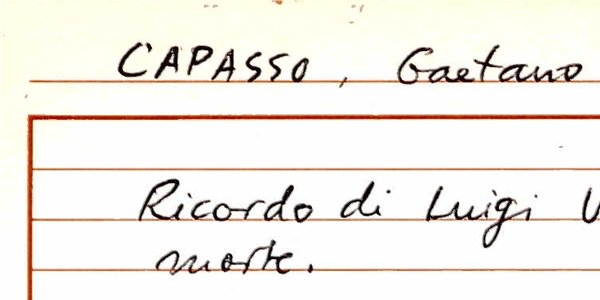 CAPASSO, Gaetano
Ricordo di Luigi
morte.